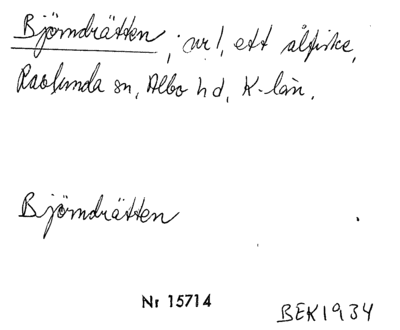 Björndrätten, ur l, ett ålfiske,
Ravlunda sn, Albo hd, K-län.
Björndrätten
Nr 15714
BEK1934